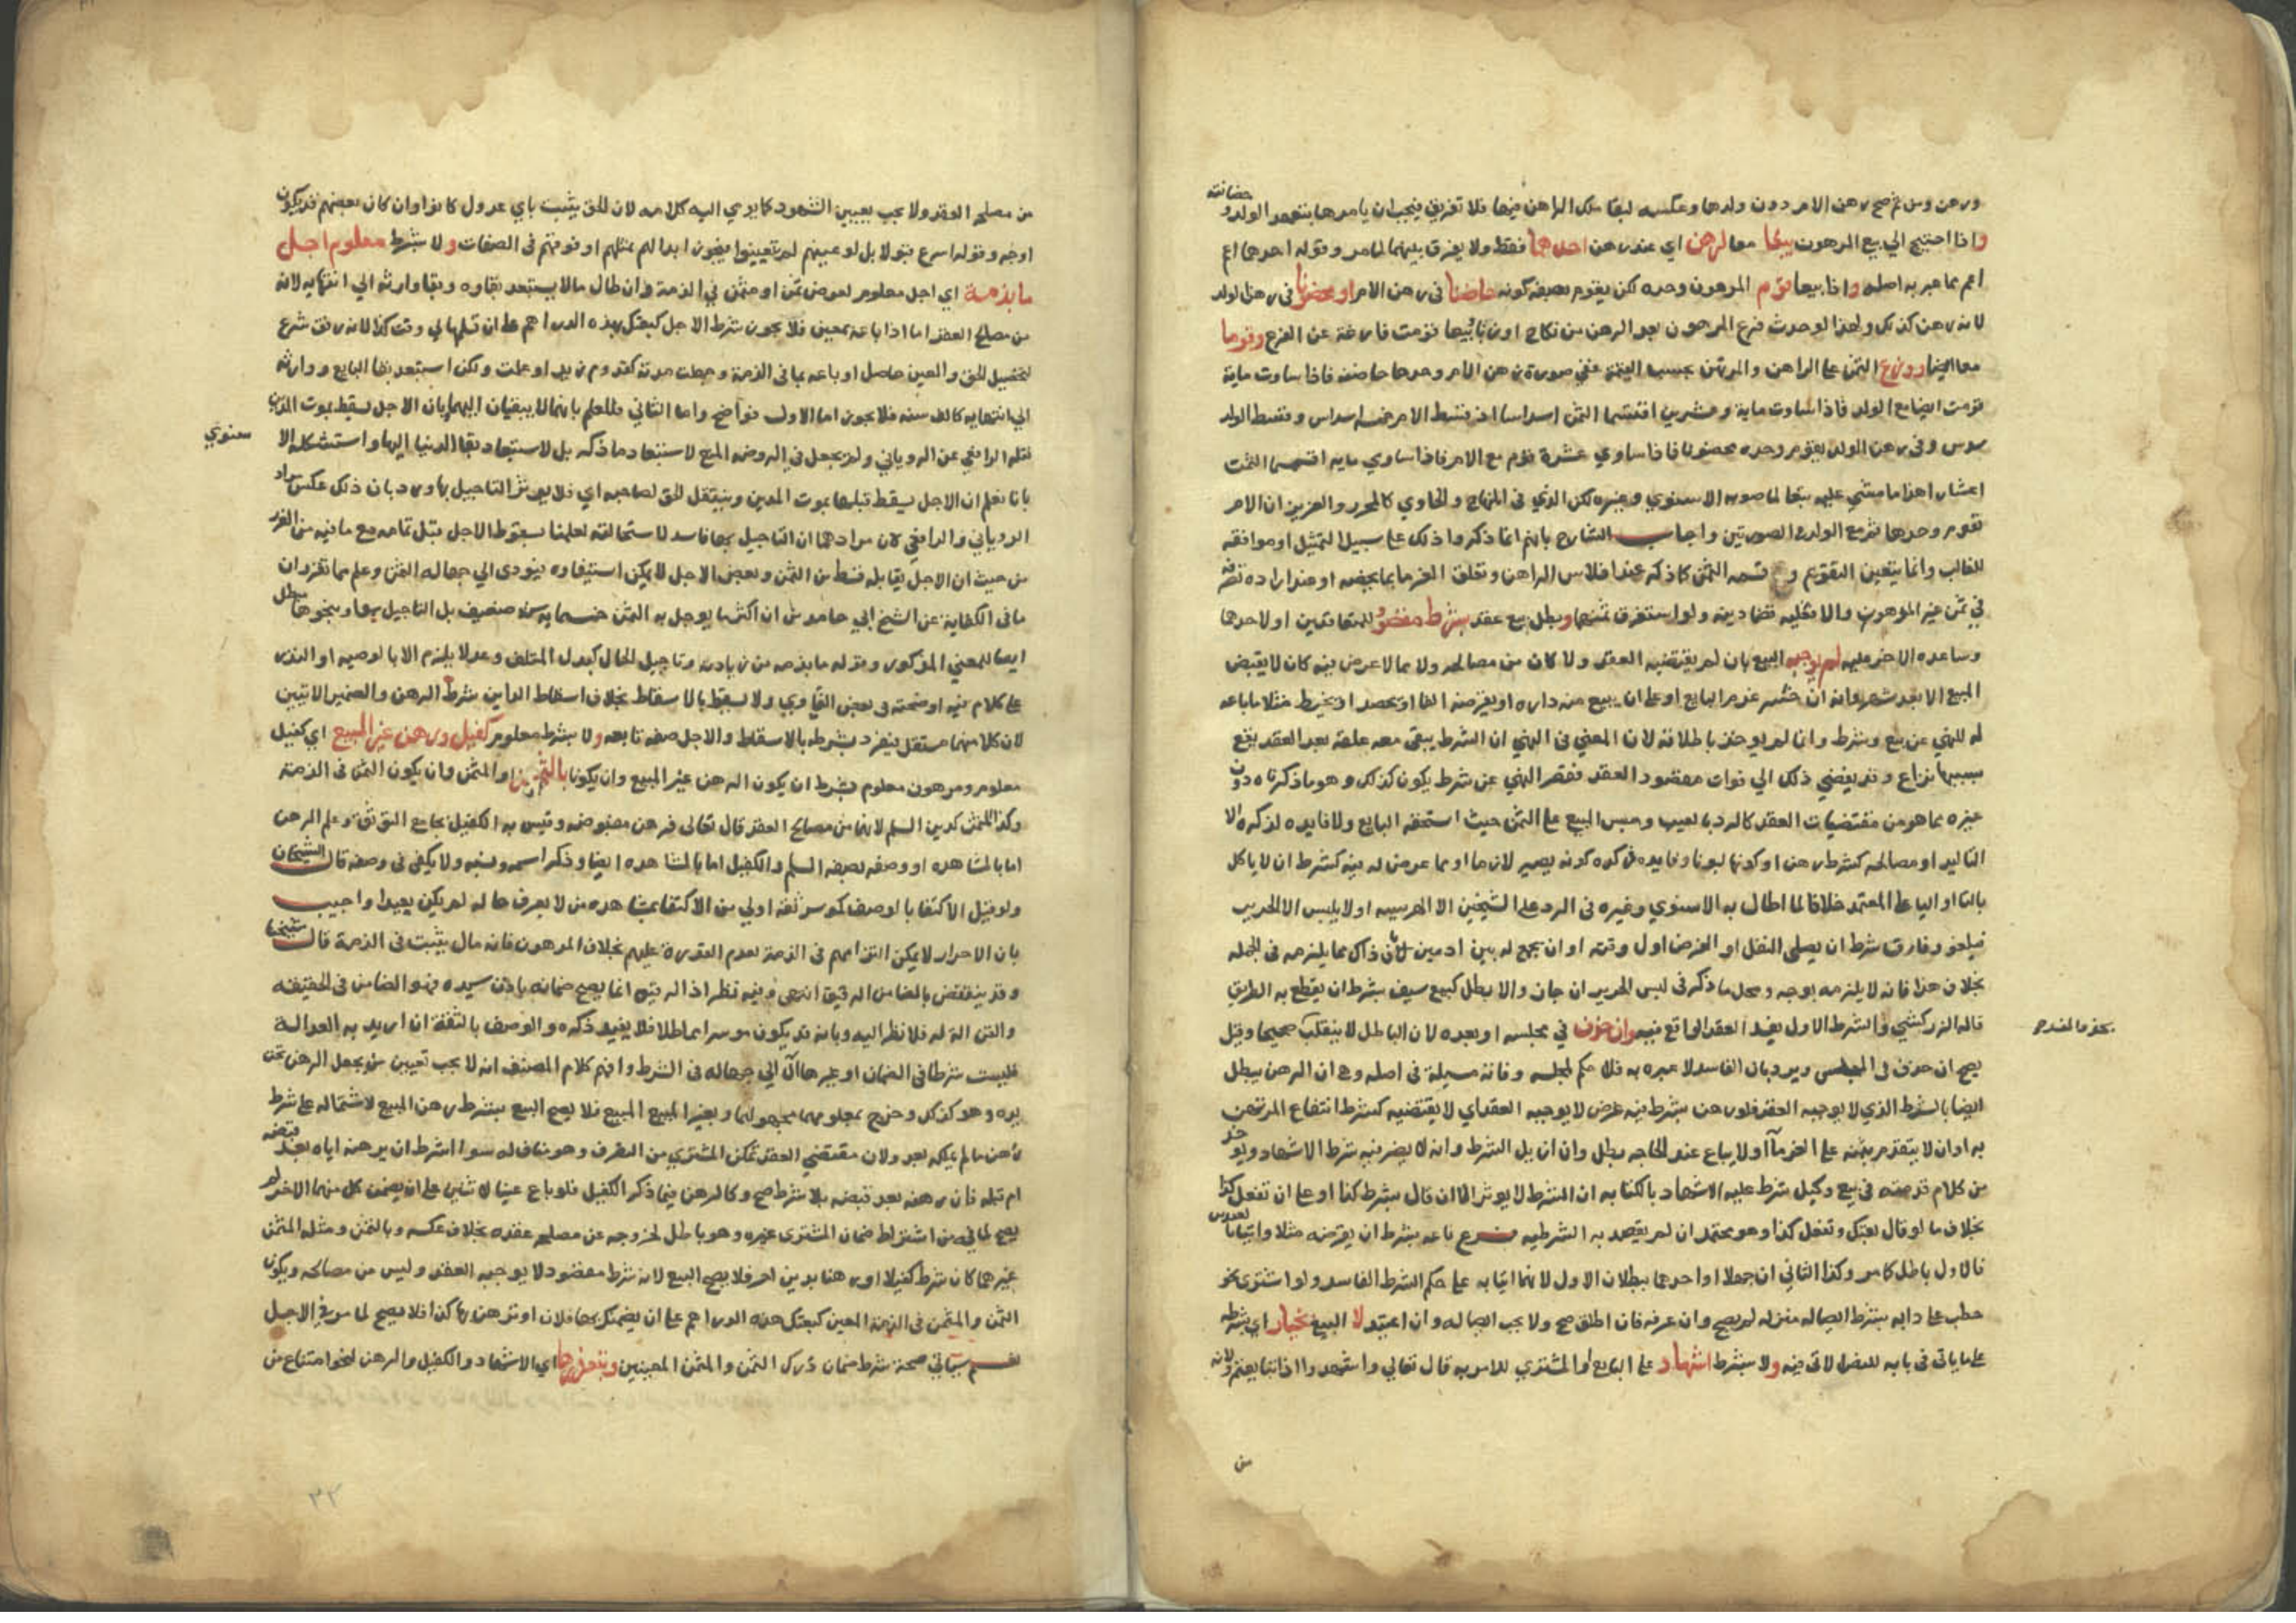 ورهن ومن ثم صح رهن الام دون ولدها وعكسه لبقا ملك الراهن فيها فلا تفريق فيجب ان يامرها بتعهد الولد و حضانته
واذا احتيج الي بيع المرهون بيعا معا لرهن اي عند رهن احدهما فقط ولا يفرق بينهما لما مر وقوله احدهما اع
اعم مما عبر به اصله واذا بيعا قوم المرهون وحده لكن يقوم بصفة كونه حاضنا في رهن الام او محضونا في رهن الولد
لانه رهن كذلك ولهذا لو حدث فرع المرهون بعد الرهن من نكاح او زنا بيعا قومت فارغة عن الفرع وقوما
معا ايضا ووزع الثمن علي الراهن والمرتهن بحسب القيمة ففي صورة رهن الام وحدها حاضنه فاذا ساوت ماية
قومت ايضا مع الولد فاذا ساوت ماية وعشرين اقتسما الثمن اسداسا اذ قسط الام خمسه اسداس وقسط الولد
سدس وفي رهن الولد يقوم وحده محضونا فاذا ساوي عشرة قوم مع الام فاذا ساوي مايه اقتسما الثمن
اعشارا هذا ما مشي عليه تبعا لما صوبه الاسنوي وغيره لكن الذي في المنهاج والحاوي كالمحرر والعزيز ان الام
تقوم وحدها ثم مع الولد في الصورتين واجاب الشارح بانهم انما ذكروا ذلك علي سبيل التمثيل او موافقه
للغالب وانما يتعين التقويم و قسمه الثمن كما ذكر عند افلاس الراهن وتعلق الغرما بما يخصه او عند اراده تصرفه
في ثمن غير المرهون والا فعليه قضا دينه ولو استغرق ثمنهما وبطل بيع عقد بشرط مقصود للمتعاقدين او لاحدهما
وساعده الاخر عليه لم يوجبه البيع بان لم يقتضيه العقد ولا كان من مصالحه ولا مما لا عرض فيه كان لا يقبض
المبيع الا بعد شهر فانه ان خسر غرم البايع او علي ان يبيع منه داره او يقرضه الفا او يحصد او يخيط مثلا ما باعه
له للنهي عن بيع وشرط وانا لم يوخذ باطلاقه لان المعني في النهي ان الشرط يبقي معه علقة بعد العقد يقع
بسببها نزاع وقد يفضي ذلك الي فوات مقصود العقد فقصر النهي عن شرط يكون كذلك وهو ما ذكرناه دون
غيره مما هو من مقتضيات العقد كالرد بالعيب وحبس المبيع علي الثمن حيث استحقه البايع ولا فايده لذكره الا
التاكيد او مصالحه كشرط رهن او كونها لبونا وفايده ذكره كونه يصير لازما او مما عرض له فيه كشرط ان لا ياكل
بالتا او اليا علي المعتمد خلافا لما اطال به الاسنوي وغيره في الرد علي الشيخين الا الهريسه او لا يلبس الا الحرير
فيلغو وفارق شرط ان يصلي النفل او الفرض اول وقته او ان يجمع له بين ادمين بان ذاك مما يلزمه في الجمله
بخلاف هذا فانه لا يلزمه بوجه ومحل ما ذكر في لبس الحرير ان جاز والا بطل كبيع سيف بشرط ان يقطع به الطريق
قاله الزركشي والشرط الاول يفيد العقد الواقع فيه وان حذف في مجلسه او بعده لان الباطل لا ينقلب صحيحا وقيل
يصح ان حذف في المجلس ويرد بان الفاسد لا عبره به فلا حكم لمجلسه وفاته مسيلة في اصله وهي ان الرهن يبطل
ايضا بالشرط الذي لا يوجبه العقد فلو رهن بشرط فيه غرض لا يوجبه العقد اي لا يقتضيه كشرط انتفاع المرتهن
به او ان لا يتقدم بثمنه علي الغرما او لا يباع عند الحاجه بطل وان ازيل الشرط وانه لا يضر فيه شرط الاشهاد ويوخذ
من كلام قدمته في بيع وكيل شرط عليه الاشهاد بالكنايه ان الشرط لا يوثر الا ان قال بشرط كذا او علي ان تفعل كذا
بخلاف ما لو قال بعتك وتفعل كذا وهو محتمل ان لم يقصد به الشرطيه فرع باعه بشرط ان يقرضه مثلا واتيانا
فالاول باطل كما مر وكذا الثاني ان جهلا او احدهما ببطلان الاول لانهما اتيا به علي حكم الشرط الفاسد ولو اشتري نحو
حطب علي دابه بشرط ايصاله منزله لم يصح وان عرفه فان اطلق صح ولا يجب ايصاله وان اعتيد لا البيع بخيار اي بشرطه
علي ما ياتي في بابه للنص الاتي فيه ولا بشرط اشهاد علي البايع او المشتري للامر به قال تعالي واشهدوا اذا تبايعتم ولانه
من
من مصلحه العقد ولا يجب تعيين الشهود كما يومي اليه كلامه لان الحق يثبت باي عدول كانوا وان كان بعضهم قد يكون
اوجه وقوله اسرع قبولا بل لو عينهم لم يتعينوا فيجوز ابدالهم بمثلهم او فوقهم في الصفات ولا بشرط معلوم اجل
ما بذمة اي اجل معلوم لعوض ثمن او مثمن في الذمة وان طال مالا يستبعد بقاوه وبقا وارثه الي انقضايه لانه
من مصلحه العقد اما اذا باعه بمعين فلا يجوز شرط الاجل كبعتك بهذه الدراهم علي ان تسلمها لي وقت كذا لانه رفق شرع
لتحصيل الحق والمعين حاصل او باعه بما في الذمة وجهلت مدته كقدوم زيد او علمت ولكن استبعد بقا البايع ووارثه
الي انقضايه كالف سنه فلا يجوز اما الاول فواضح واما الثاني فللعلم بانهما لا يبقيان اليها بان الاجل يسقط بموت المدين
نقله الرافعي عن الروياني ولم يجعل في الروضه المنع لاستبعاد ما ذكر بل لاستبعاد بقا الدنيا اليها واستشكله الا سنوي
بانا نعلم ان الاجل يسقط قبلها بموت المدين وينتقل الحق لصاحبه اي فلا يوثر التاجيل بها ورد بان ذلك عكس مراد
الروياني والرافعي لان مرادهما ان التاجيل بها فاسد لاستحالته لعلمنا بسقوط الاجل قبل تمامه مع ما فيه من الغرر
من حيث ان الاجل يقابله قسط من الثمن وبعض الاجل لا يمكن استيفاوه فيودي الي جهاله الثمن وعلم مما تقرر ان
ما في الكفاية عن الشيخ ابي حامد من ان اكثر ما يوجل به الثمن خمسمايه سنه ضعيف بل التاجيل بها ونحوها باطل
ايضا للمعني المذكور وقوله ما بذمه من زيادته وتاجيل الحال كبدل المتلف وعدلا يلزم الا بالوصيه او النذر
علي كلام فيه اوضحته في بعض الفتاوي ولا يسقط بالاسقاط بخلاف اسقاط الداين شرط الرهن والضمير الاتيين
لان كلا منهما مستقل ينفرد بشرطه بالاسقاط والاجل صفه تابعه ولا بشرط معلوم كفيل ورهن غير المبيع اي كفيل
معلوم ومرهون معلوم بشرط ان يكون الرهن غير المبيع وان يكونا بالثمن او المثمن وان يكون الثمن في الذمة
وكذا المثمن كدين السلم لانهما من مصالح العقد قال تعالي فرهن مقبوضه وقيس به الكفيل بجامع التوثق وعلم الرهن
اما بالمشاهده او وصفه بصفه السلم والكفيل اما بالمشاهده ايضا وذكر اسمه ونسبه ولا يكفي في وصفه قال الشيخان
ولو قيل الاكتفا بالوصف كموسر ثقه اولي من الاكتفا بمشاهده من لا يعرف حاله لم يكن بعيدا واجيب
بان الاحرار لا يمكن التزامهم في الذمة لعدم القدرة عليهم بخلاف المرهون فانه مال يثبت في الذمة قال شيخنا
وقد ينتقض بالضامن الرقيق انتهي وفيه نظر اذ الرقيق انما يصح ضمانه باذن سيده فهو الضامن في الحقيقه
والقن الة له فلا نظر اليه وبانه قد يكون موسرا مماطلا فلا يفيد ذكره والوصف بالثقة ان اريد به العدالة
فليست شرطا في الضمان او غيرها آل الي جهاله في الشرط وافهم كلام المصنف انه لا يجب تعيين من يجعل الرهن تحت
يده وهو كذلك وخرج بمعلومهما مجهولهما وبغير المبيع المبيع فلا يصح البيع بشرط رهن المبيع لاشتماله علي شرط
رهن ما لم يملكه بعد ولان مقتضي العقد تمكن المشتري من التصرف وهو مناف له سوا اشرط ان يرهنه اياه بعد قبضه
ام قبله فان رهنه بعد قبضه بلا شرط صح وكالرهن فيما ذكر الكفيل فلو باع عينا لاثنين علي ان يضمن كل منهما الاخر لم
يصح لما فيه من اشتراط ضمان المشتري غيره وهو باطل لخروجه عن مصلحه عقده بخلاف عكسه وبالثمن ومثله المثمن
غيرهما كان شرط كفيلا او رهنا بدين اخر فلا يصح البيع لانه شرط مقصود لا يوجبه العقد وليس من مصالحه ويكون
الثمن والمثمن في الذمة المعين كبعتك هذه الدراهم علي ان يضمنك بها فلان او ترهن بها كذا فلا يصح لما مر في الاجل
نعم سياتي صحة شرط ضمان درك الثمن والمثمن المعينين وبتعذرها اي الاشهاد والكفيل والرهن لنحو امتناع من